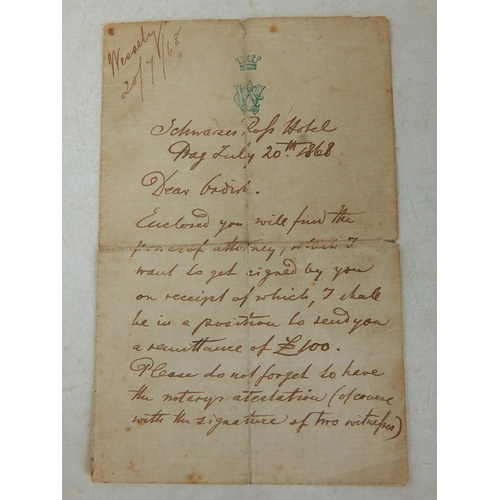 Wessely
20/7/68
Schwarzes Ross Hotel
Prag July 20th. 1868
Dear Ordish.
Enclosed you will find the
power of attorney, which I
want to get signed by you
on receipt of which, I shall
be in a position to send you
a remittance of £100.
Please do not forget to have
the notarys atestation (of course
with the signature of two witnesses)